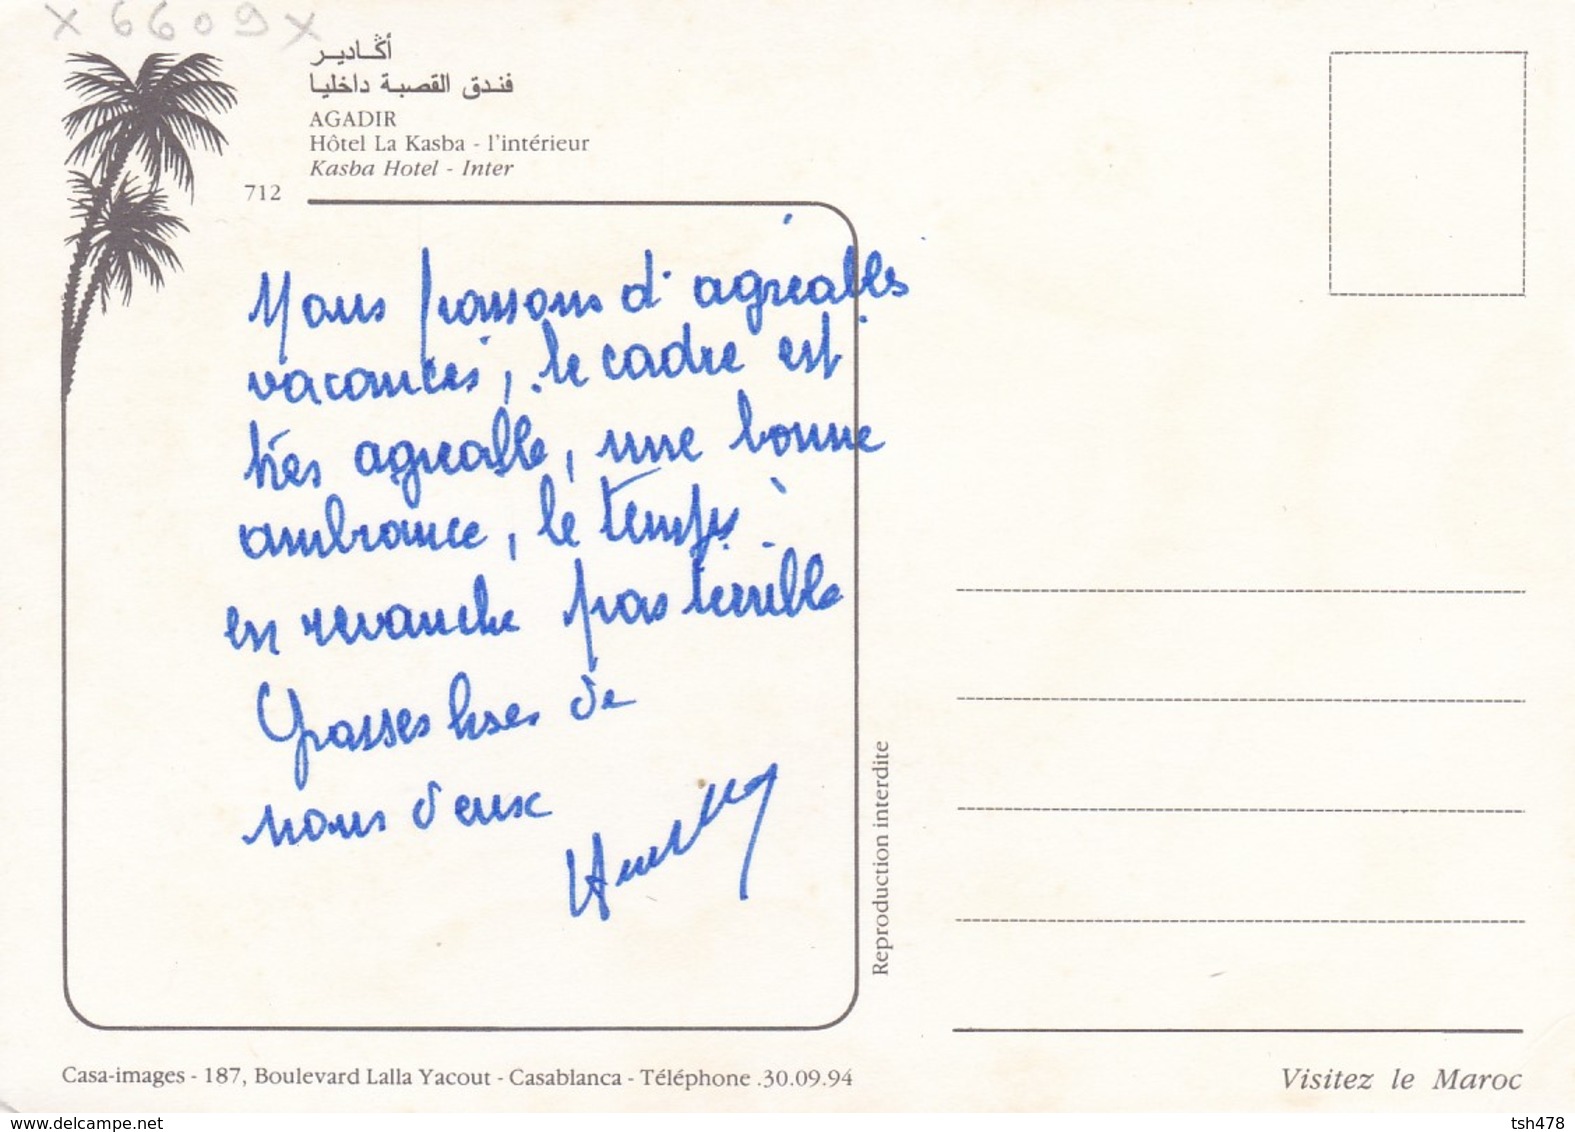 x 6609 x
أݣادير
فندق القصبة داخليا
AGADIR
Hôtel La Kasba - l'intérieur
Kasba Hotel - Inter
712
Nous passons d'agréables
vacances, le cadre est
très agréable, une bonne
ambiance, le temps
en revanche pas terrible
Grosses bises de
nous deux
Reproduction interdite
Casa-images - 187, Boulevard Lalla Yacout - Casablanca - Téléphone .30.09.94
Visitez le Maroc
www.delcampe.net
tsh478